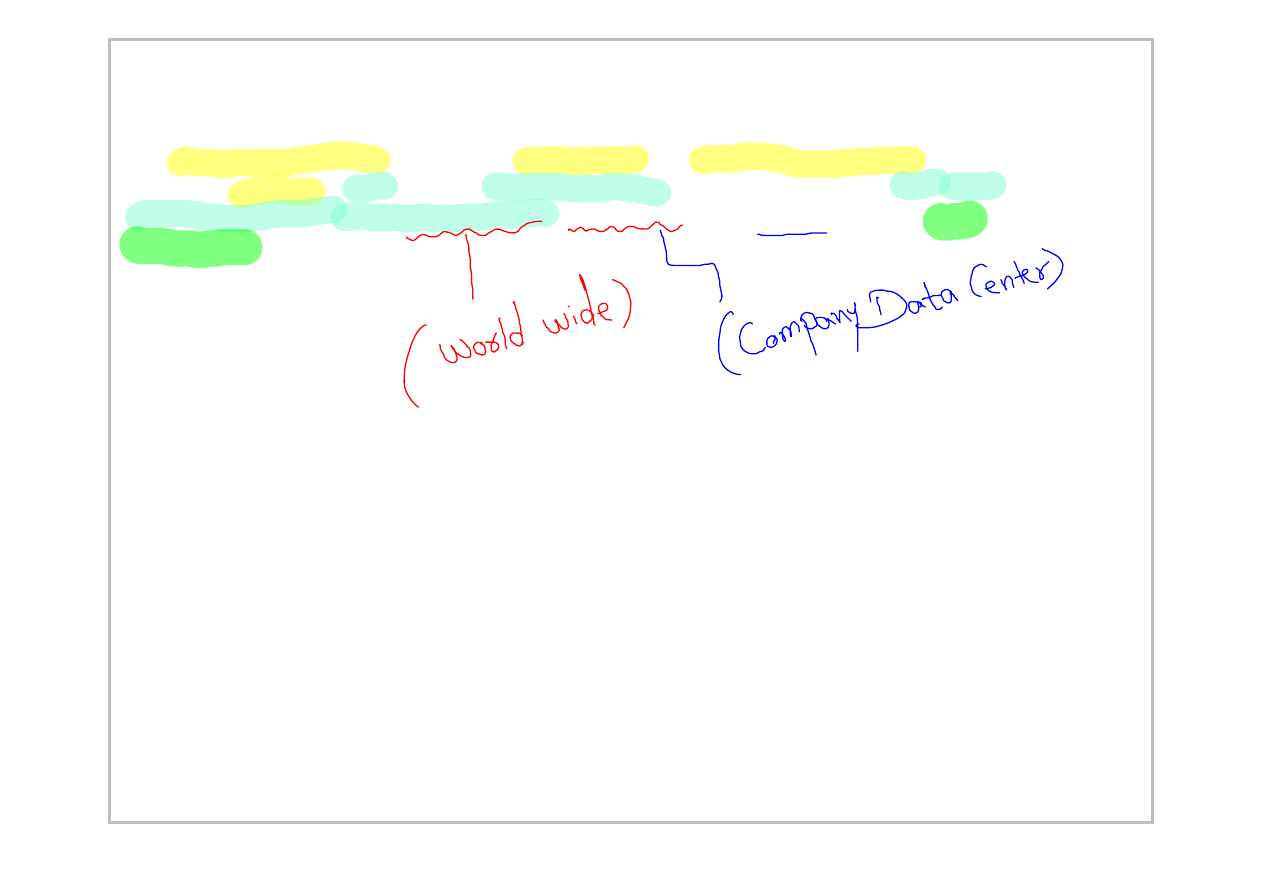 (world wide)
(Company Data Center)